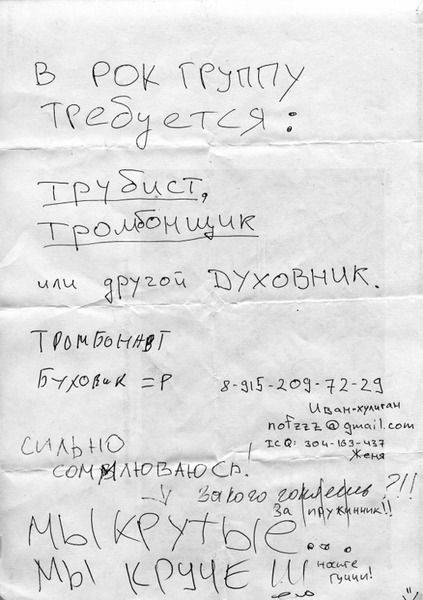 В РОК ГРУППУ
ТРЕБУЕТСЯ:
ТРУБИСТ,
ТРОМБОНЩИК
или другой ДУХОВНИК.
ТРОМБОНАВТ
БУХОВИК =Р
8-915-209-72-29
Иван-хулиган
notzzz@gmail.com
ICQ: 304-163-437
Женя
СИЛЬНО
СОМНЛЮВАЮСЬ.
За кого гонлешь ?!!
За пружинник!!
МЫ КРУТЫЕ...
МЫ КРУЧЕ !!!
наште
гуччи!